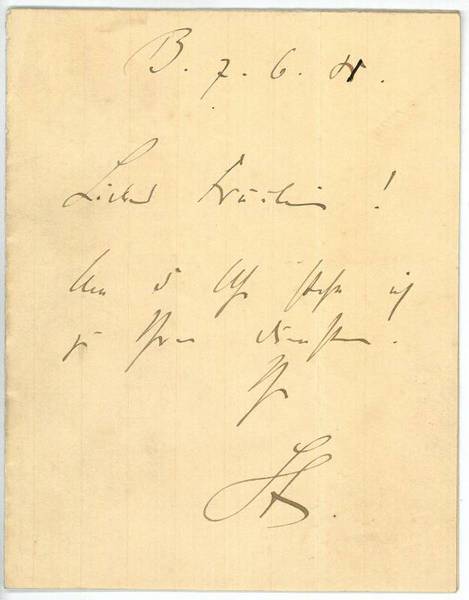 B. 7. 6.
Liebes Fräulein!
Um 5 Uhr stehe ich
zu Ihren Diensten.
Ihr